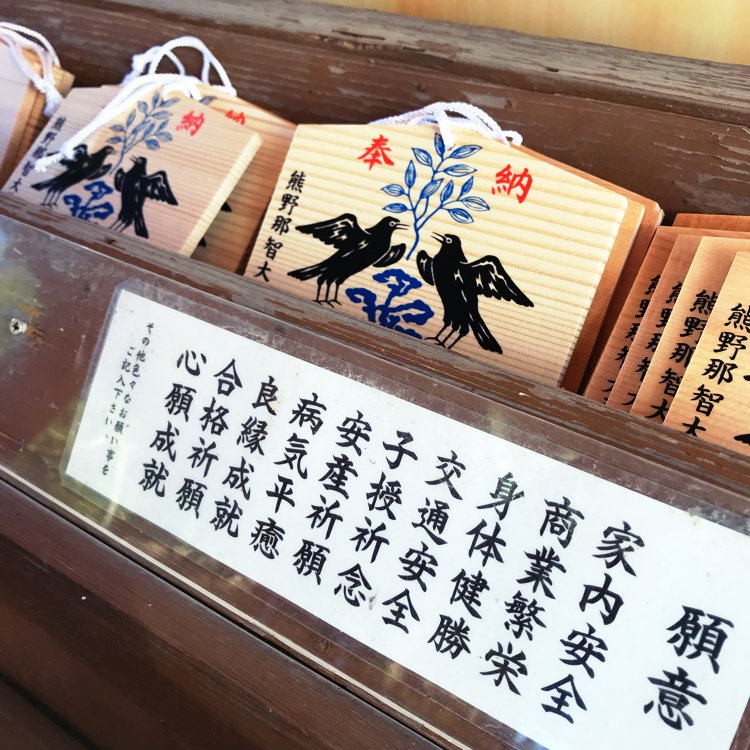 納
熊野那智大
奉納
熊野那智大
熊野那智大
熊野那智大
熊野那智大
熊野那智大
願意
家内安全
商業繁栄
身体健勝
交通安全
子授祈念
安産祈願
病気平癒
良縁成就
合格祈願
心願成就
その他色々なお願い事を
ご記入下さい。